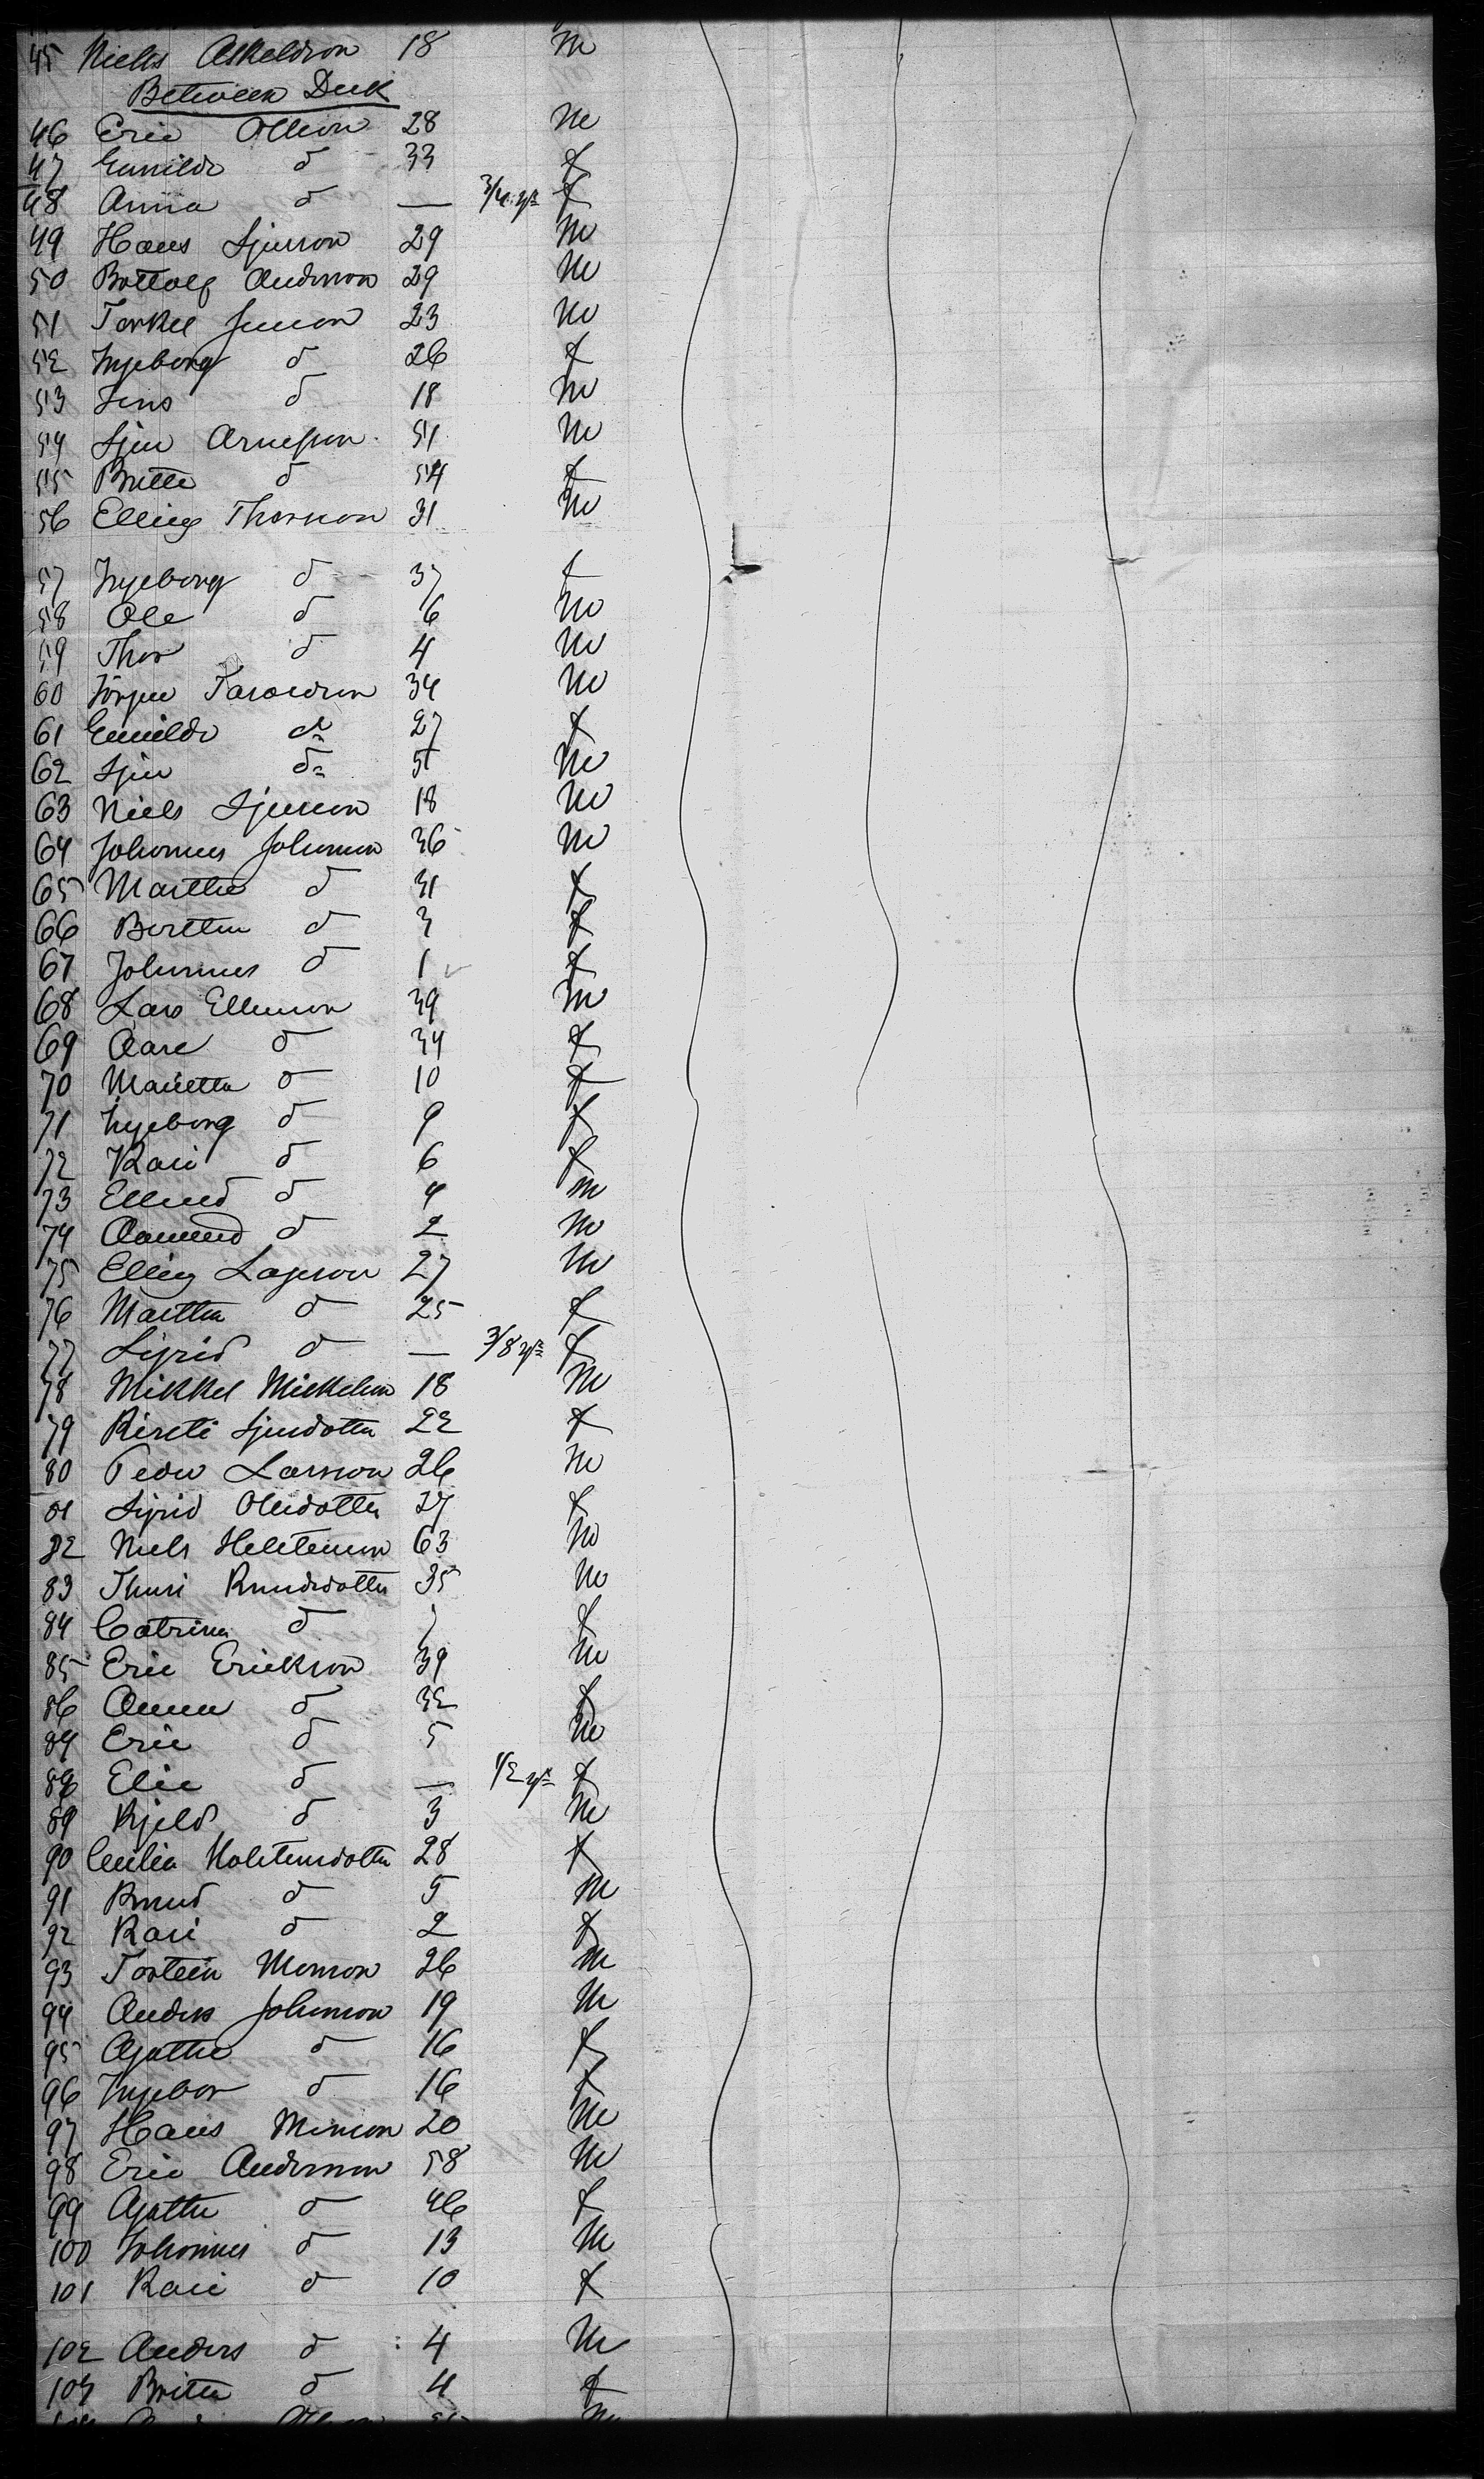 45 Niels Askeldson 18 m
Between Deck
46 Eric Olleson 28 m
47 Gunilde do 33 f
48 Anna do — 3/4 yrs f
49 Hans Sjurson 29 m
50 Bottolf Anderson 29 m
51 Torkel Jenson 23 m
52 Ingeborg do 26 f
53 Jens do 18 m
54 Sjur Arnesson 51 m
55 Britte do 54 f
56 Elling Thorson 31 m
57 Ingeborg do 37 f
58 Ole do 6 m
59 Thor do 4 m
60 Jörgen 34 m
61 Gunilde do 27 f
62 Sjur do 5 m
63 Niels Sjurson 18 m
64 Johannes Johanson 36 m
65 Marthe do 31 f
66 Berthe do 3 f
67 Johannes do 1 f
68 Lars Ellenson 39 m
69 Aase do 34 f
70 Marietta do 10 f
71 Ingeborg do 9 f
72 Kari do 6 f
73 Ellend do 4 m
74 Aamund do 2 m
75 Elling Lassson 27 m
76 Martha do 25 f
77 Sigrid do — 3/8 yrs f
78 Mikkel Mickelson 18 m
79 Kirsti Sjursdotter 22 f
80 Peder Larsson 26 m
81 Sigrid Olesdotter 27 f
82 Niels 63 m
83 Thuri Knudsdotter 35 m
84 Catrina do 7 f
85 Eric Erickson 39 m
86 Anna do 32 f
87 Eric do 5 m
88 Elie do — 1/2 yrs f
89 Kjeld do 3 m
90 Cecilia Holstensdotter 28 f
91 Knud do 5 m
92 Kari do 2 f
93 Tostein Monson 26 m
94 Anders Johnson 19 m
95 Agathe do 16 f
96 Ingebor do 16 f
97 Hans Monson 20 m
98 Eric Anderson 58 m
99 Agathe do 46 f
100 Johannes do 13 m
101 Kari do 10 f
102 Anders do 4 m
103 Britta do 4 f